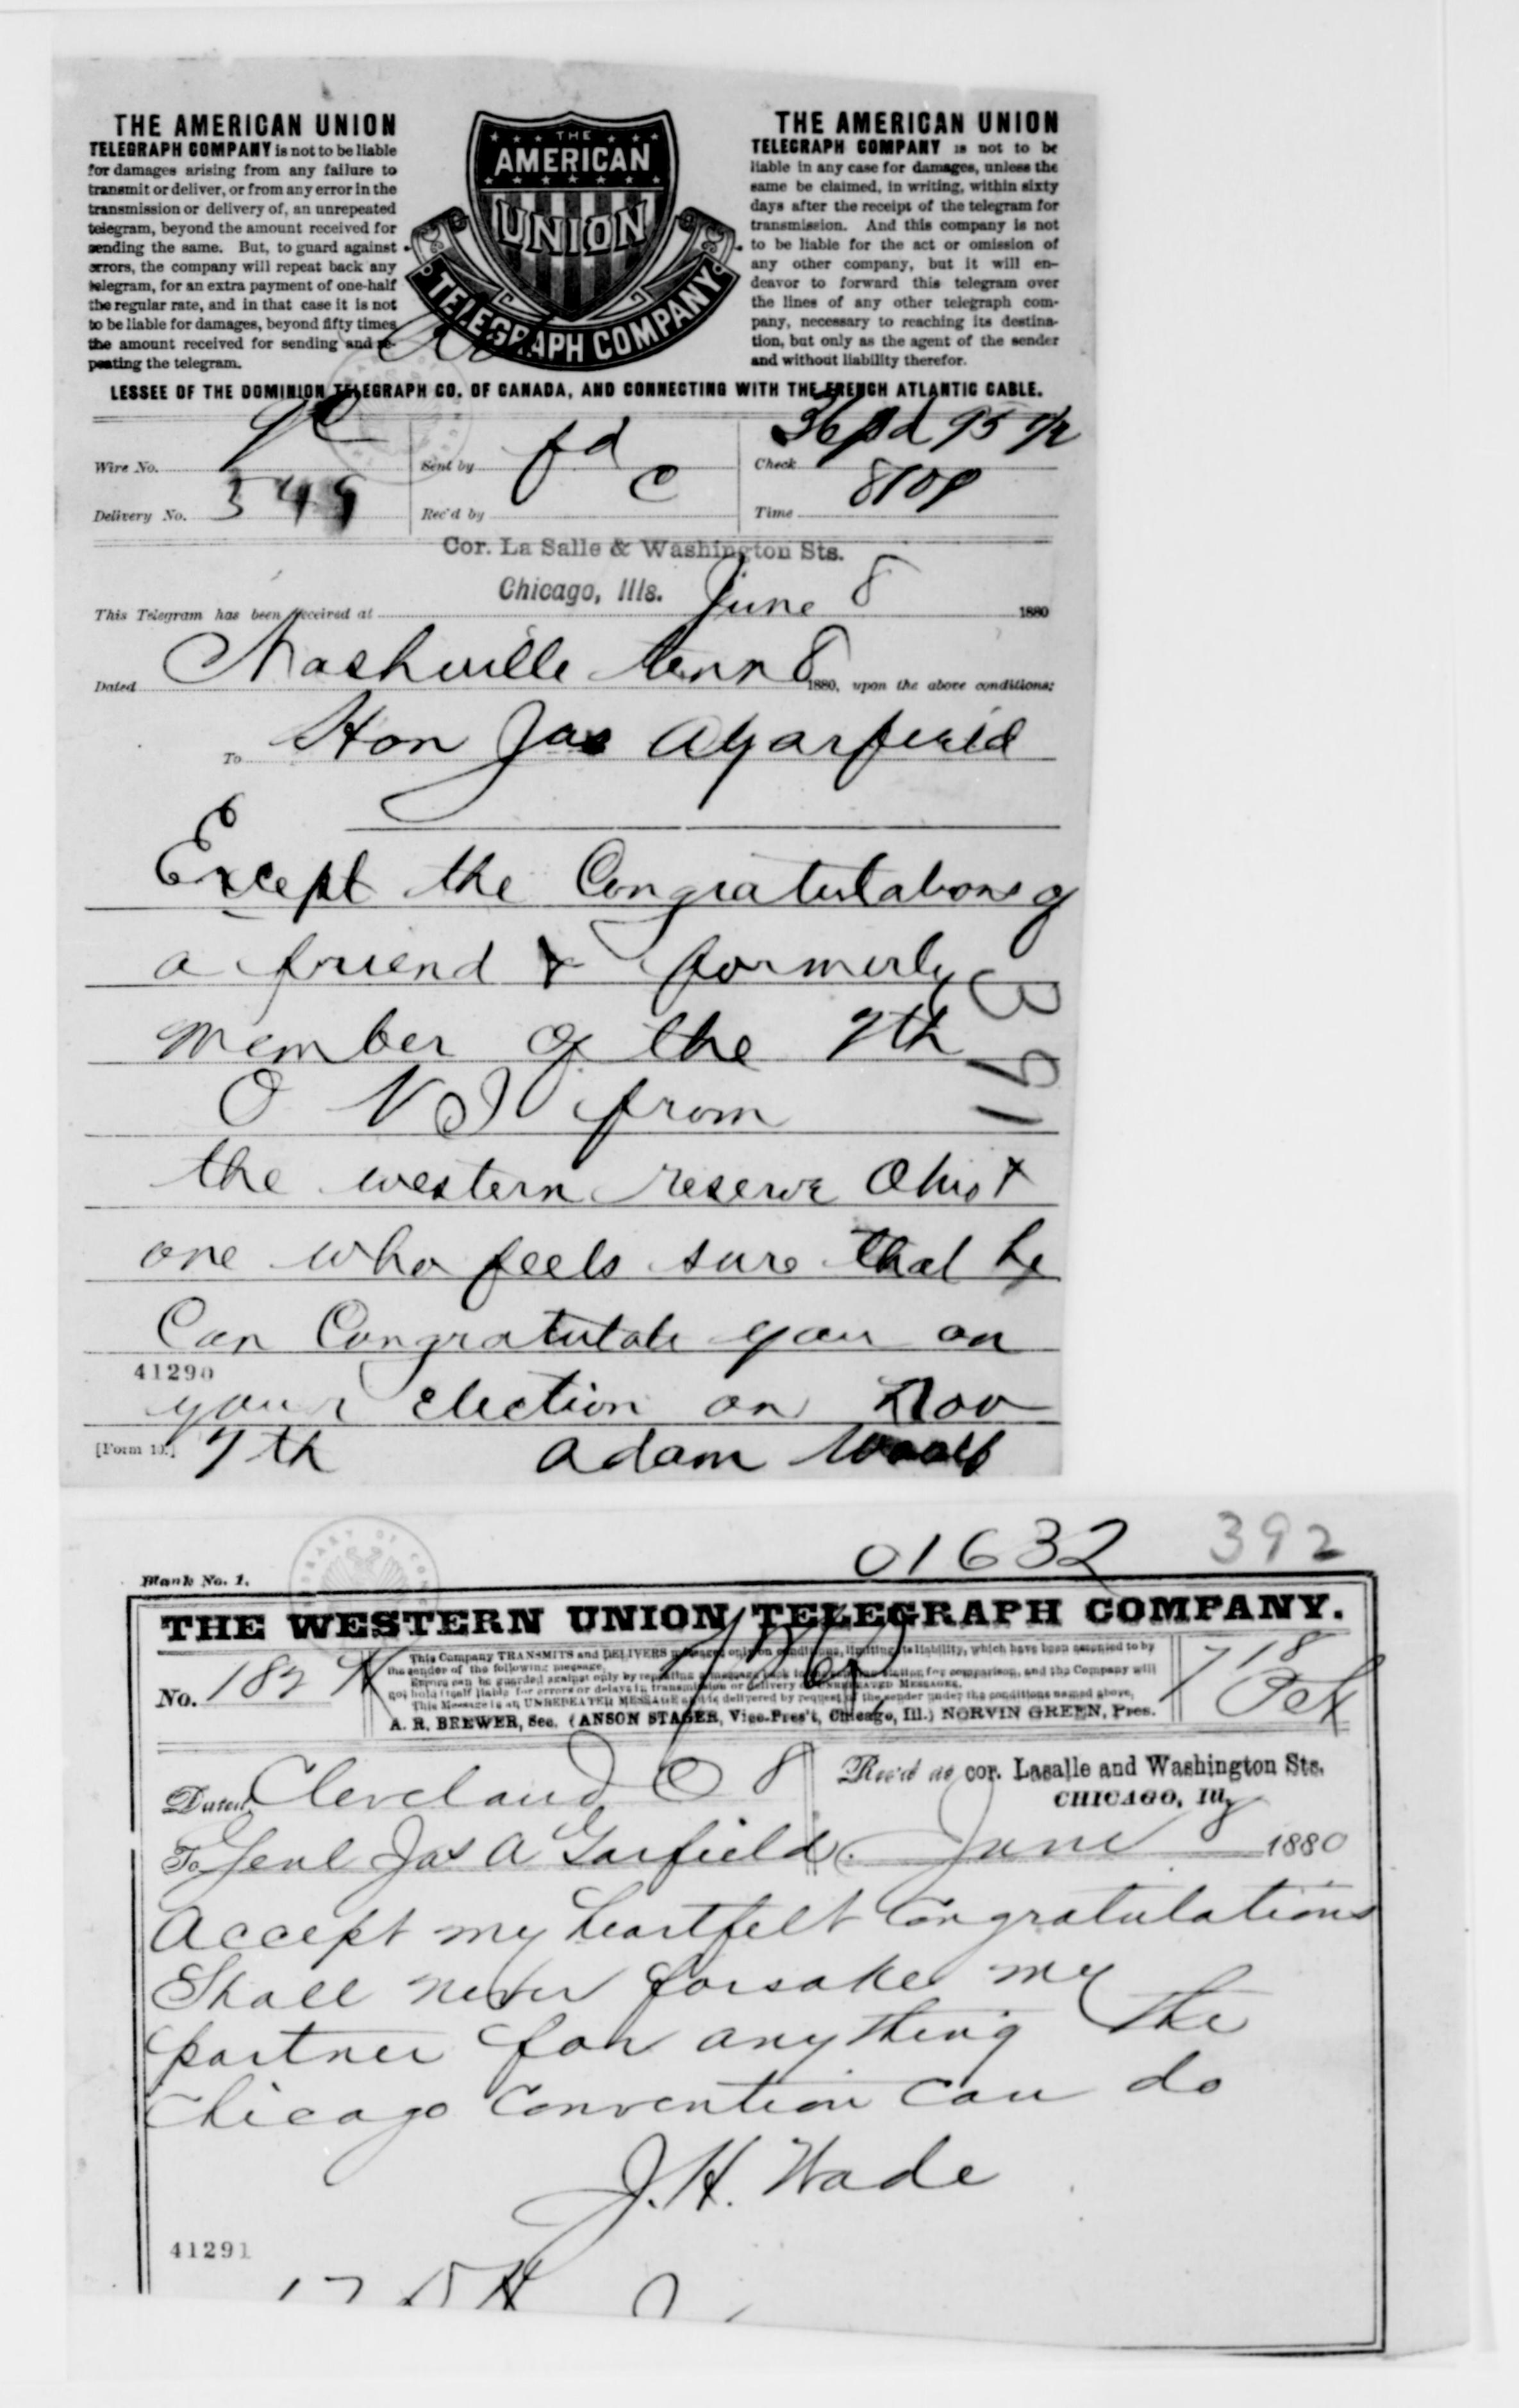 THE AMERICAN UNION
TELEGRAPH COMPANY is not to be liable
for damages arising from any failure to
transmit or deliver, or from any error in the
transmission or delivery of, an unrepeated
telegram, beyond the amount received for
sending the same. But, to guard against
errors, the company will repeat back any
telegram, for an extra payment of one-half
the regular rate, and in that case it is not
to be liable for damages, beyond fifty times
the amount received for sending and re-
peating the telegram.
THE
AMERICAN
UNION
TELEGRAPH COMPANY
THE AMERICAN UNION
TELEGRAPH COMPANY is not to be
liable in any case for damages, unless the
same be claimed, in writing, within sixty
days after the receipt of the telegram for
transmission. And this company is not
to be liable for the act or omission of
any other company, but it will en-
deavor to forward this telegram over
the lines of any other telegraph com-
pany, necessary to reaching its destina-
tion, but only as the agent of the sender
and without liability therefor.
LESSEE OF THE DOMINION TELEGRAPH CO. OF CANADA, AND CONNECTING WITH THE FRENCH ATLANTIC CABLE.
Wire No.
Sent by fd
Check 36 pd 95
Delivery No. 349
Rec'd by C
Time 810P
Cor. La Salle & Washington Sts.
Chicago, Ills.
This Telegram has been received at June 8 1880
Dated Nashville Tenn 8 1880, upon the above conditions:
To Hon Jas A Garfield
Except the Congratulations of
a friend & formerly
member of the 7th
O V I from
the western reserve Ohio &
one who feels sure that he
Can Congratulate you on
41290
your election on Nov
[Form 10.] 7th Adam
01632 392
Blank No. 1.
THE WESTERN UNION TELEGRAPH COMPANY.
This Company TRANSMITS and DELIVERS messages only on conditions, limiting its liability, which have been assented to by
the sender of the following message.
Errors can be guarded against only by repeating a message back to the sending station for comparison, and the Company will
not hold itself liable for errors or delays in transmission or delivery of UNREPEATED MESSAGES.
This Message is an UNREPEATED MESSAGE and is delivered by request of the sender under the conditions named above.
A. R. BREWER, Sec. (ANSON STAGER, Vice-Pres't, Chicago, Ill.) NORVIN GREEN, Pres.
No. 182
718
Dated Cleveland O 8
Rec'd at cor. Lasalle and Washington Sts.
CHICAGO, Ill,
To Genl Jas A Garfield. June 8 1880
Accept my heartfelt Congratulations
Shall never forsake my
partner for anything the
Chicago Convention can do
J. H. Wade
41291